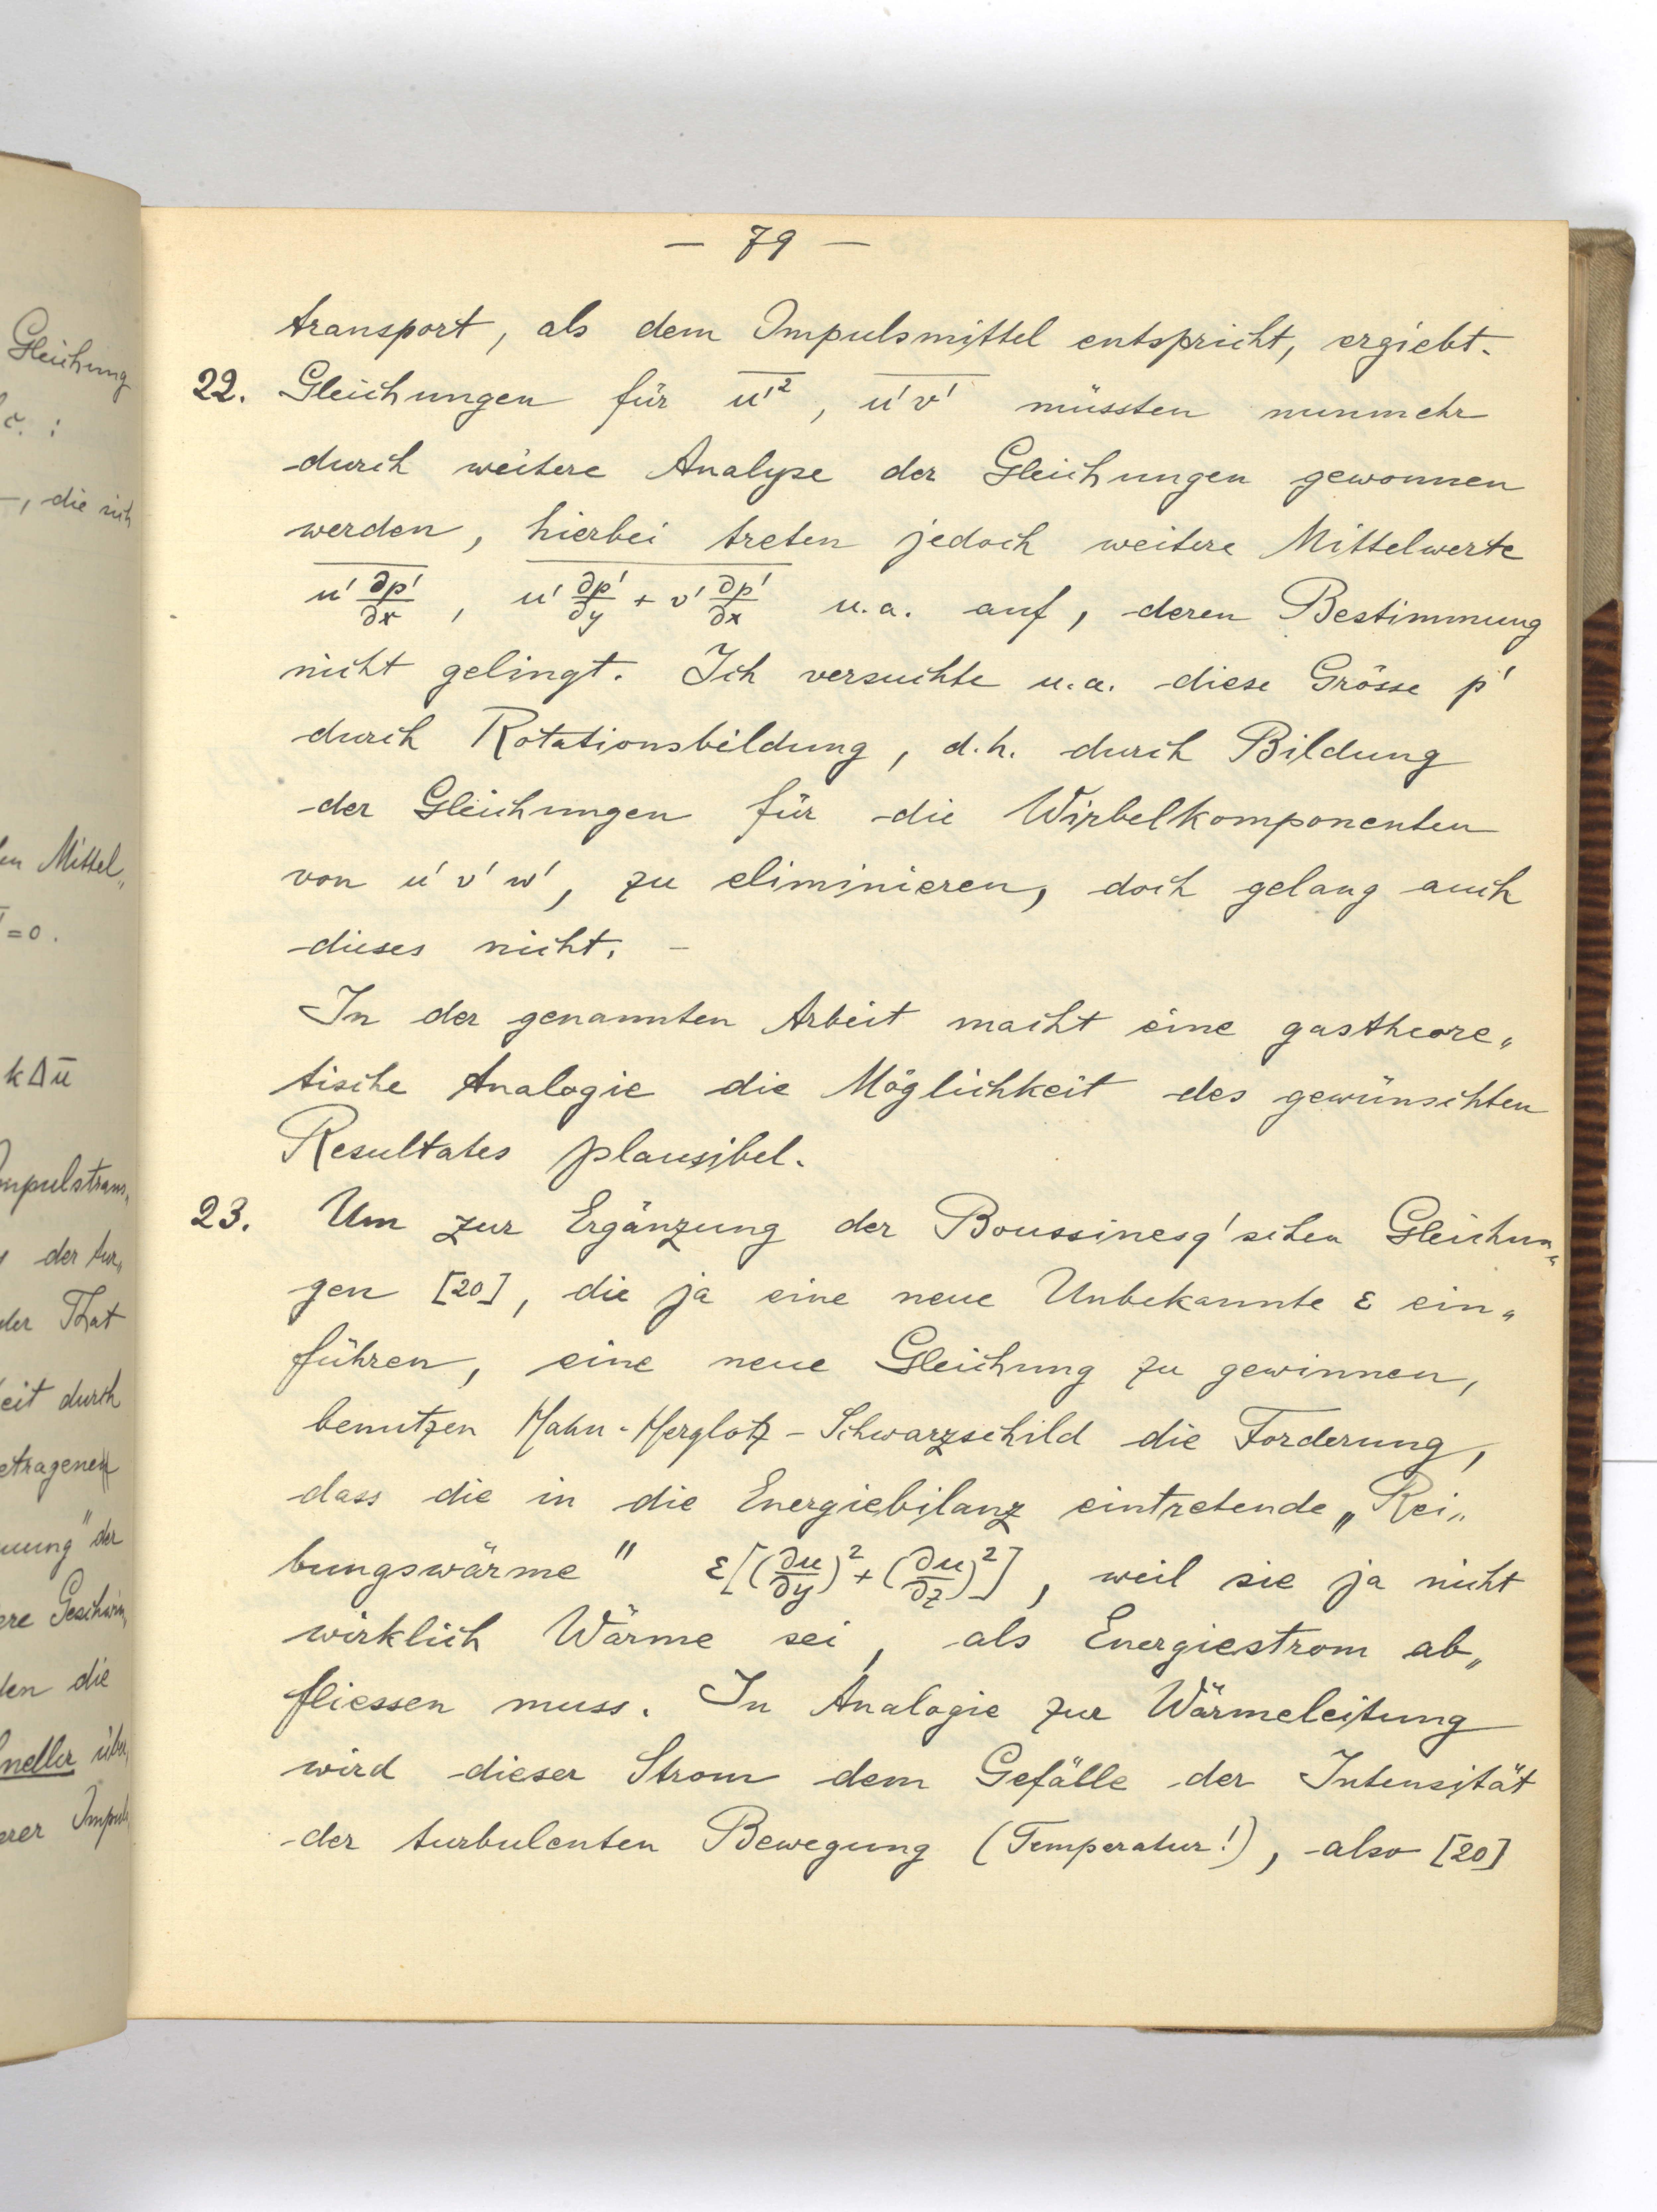 Gleichung
c. :
–, die sich
en Mittel„
=0.
kΔu̅
Impulstrans„
der tur„
der That
eit durch
etragenen
uung" der
ere Geschwin„
den die
neller über„
erer Impuls
— 79 —
transport, als dem Impulsmittel entspricht, ergiebt.
22. Gleichungen für \overline{u'^2}, \overline{u'v'} müssten nunmehr
durch weitere Analyse der Gleichungen gewonnen
werden, hierbei treten jedoch weitere Mittelwerte
\overline{u' ∂p'/∂x}, \overline{u' ∂p'/∂y + v' ∂p'/∂x} u.a. auf, deren Bestimmung
nicht gelingt. Ich versuchte u.a. diese Grösse p'
durch Rotationsbildung, d.h. durch Bildung
der Gleichungen für die Wirbelkomponenten
von u' v' w', zu eliminieren, doch gelang auch
dieses nicht. –
In der genannten Arbeit macht eine gastheore„
tische Analogie die Möglichkeit des gewünschten
Resultates plausibel.
23. Um zur Ergänzung der Boussinesq'schen Gleichun„
gen [20], die ja eine neue Unbekannte ε ein„
führen, eine neue Gleichung zu gewinnen,
benutzen Hahn-Herglotz-Schwarzschild die Forderung,
dass die in die Energiebilanz eintretende „Rei„
bungswärme" ε[(∂u/∂y)² + (∂u/∂z)²], weil sie ja nicht
wirklich Wärme sei, als Energiestrom ab„
fliessen muss. In Analogie zur Wärmeleitung
wird dieser Strom dem Gefälle der Intensität
der turbulenten Bewegung (Temperatur!), also [20]